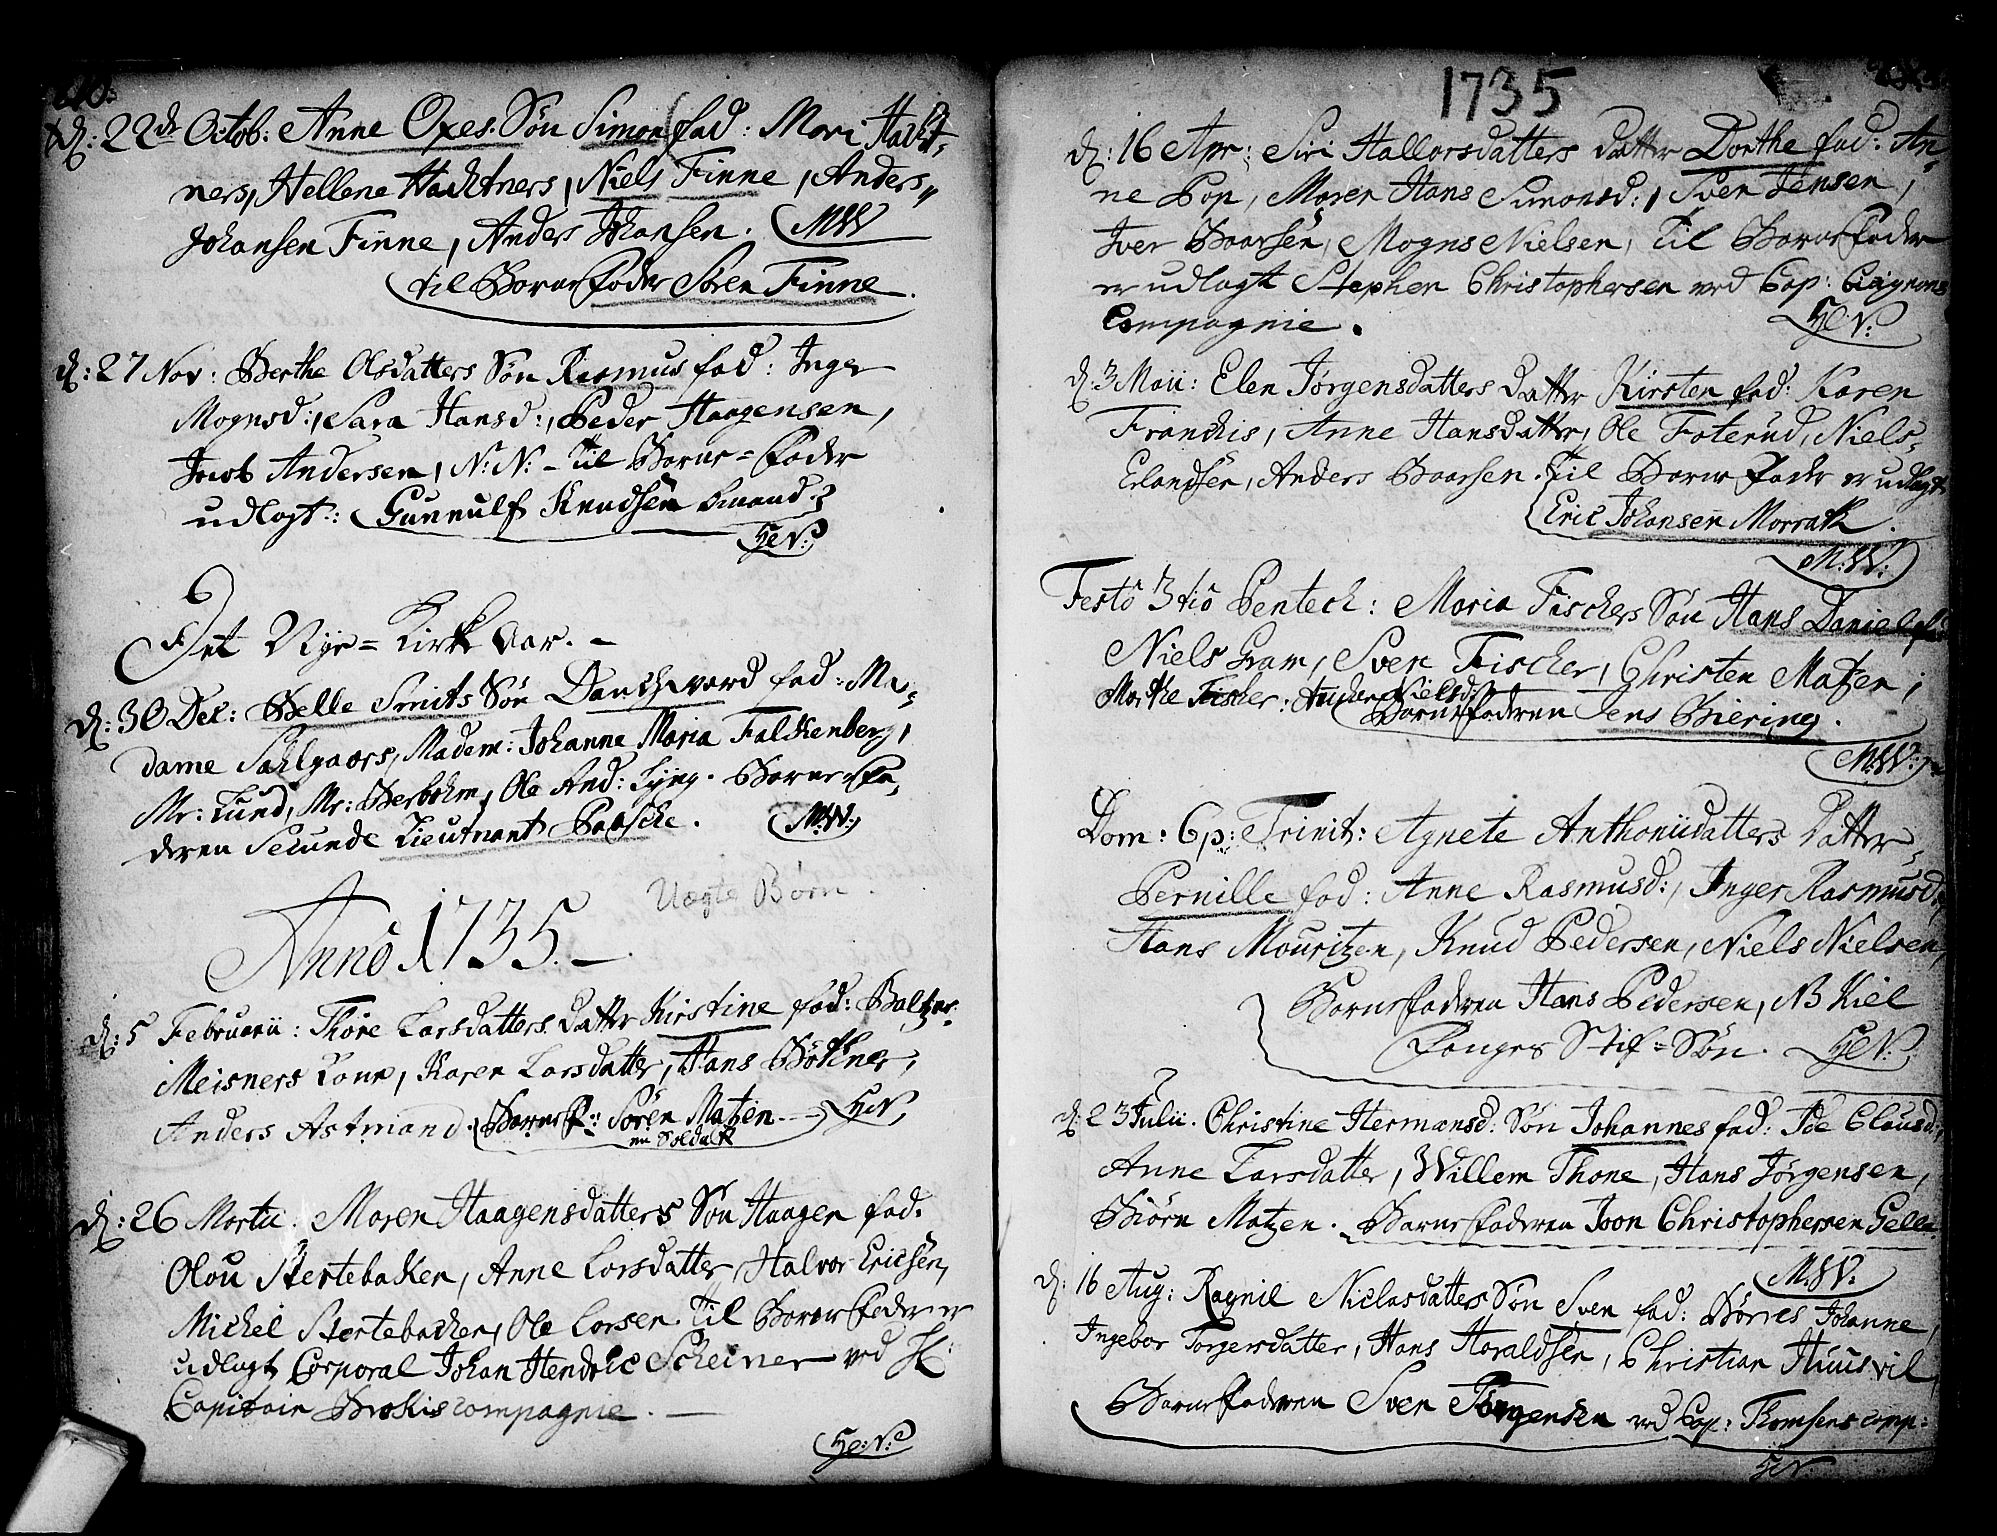 210.
d: 22de Octob: Anne Oxes Søn Simon fad: Mari Hacht-
ners, Hellene Hachtners, Niels Finne, Anders
Johansen Finne, Anders Johansen. MW
til Barnefader Søren Finne.
d: 27 Nov: Berthe Olsdatters Søn Rasmus fad: Inger
Mognsd:, Sara Hansd:, Peder Haagensen,
Jacob Andersen, N: N: - til Barne=fader
udlagt: Gunnulf Knudsen
HeN:
Det Nye=Kirke var. -
d: 30 Dec: Belle Smits Søn Danchward fad: Ma-
dame Sahlgaars, Madem: Johanne Maria Falckenberg,
Mr: Lund, Mr: Berbohm, Ole And: Lyng. Barnefa-
deren Secunde Lieutnant Paasche. MW:
Uægte Børn
Anno 1735. -
d: 5 Februarii: Thore Larsdatters datter Kirstine fad: Baltzer
Meisners Kone, Karen Larsdatter, Hans Bøtkner,
Anders Astmand. Barnef: Søren Matzen HeN:
en Soldat
d: 26 Martii: Maren Haagensdatters Søn Haagen fad:
Olou Stertebaken, Anne Larsdatter, Halvor Ericsen,
Michel Stertebacken, Ole Larsen. til Barnefader er
udlagt Corporal Johan Hendric Scheiner ved H:
Capitain Brokis compagnie. -
He:N:
1735
d: 16 Apr: Siri Hallorsdatters datter Dorthe fad: An-
ne Pop, Maren Hans Simonsd:, Sven Jensen,
Iver Baarsen, Mogns Nielsen, til Barnefader
er udlagt Stephen Christophersen ved Cap: Caignons
Compagnie. HeN:
d: 3 Maii: Elen Jørgensdatters datter Kirsten fad: Karen
Franckis, Anne Hansdatter, Ole Foterud, Niels
Erlandsen, Anders Baarsen. til Barnefader er udlagt
Eric Johansen Morrath.
M:W:
Festo 3tio Pentech: Maria Fischers Søn Hans Daniel fad
Niels Gram, Sven Fischer, Christen Matzen,
Marthe Fischer: Anne Nielsd:
Barnefaderen Jens Biering.
M:W:
Dom: 6 p: Trinit: Agnete Anthoniidatters Datter
Pernille fad: Anne Rasmusd:, Inger Rasmusd:,
Hans Mouritzen, Knud Pedersen, Niels Nielsen,
Barnefaderen Hans Pedersen, NB Kiel
Fanges Stif=Søn. HeN:
d: 23 Julii. Christine Hermansd: Søn Johannes fad: Ide Clausd:,
Anne Larsdatter, Willem Thone, Hans Jørgensen,
Biørn Matzen. Barnefaderen Joon Christophersen Gelle
M:W:
d: 16 Aug: Ragnil Niclasdatters Søn Sven fad: Børres Johanne,
Ingebor Torgersdatter, Hans Haraldsen, Christian Huusvil,
Barnefaderen Sven Torgensen ved Cap: Thomsens comp:
HeN